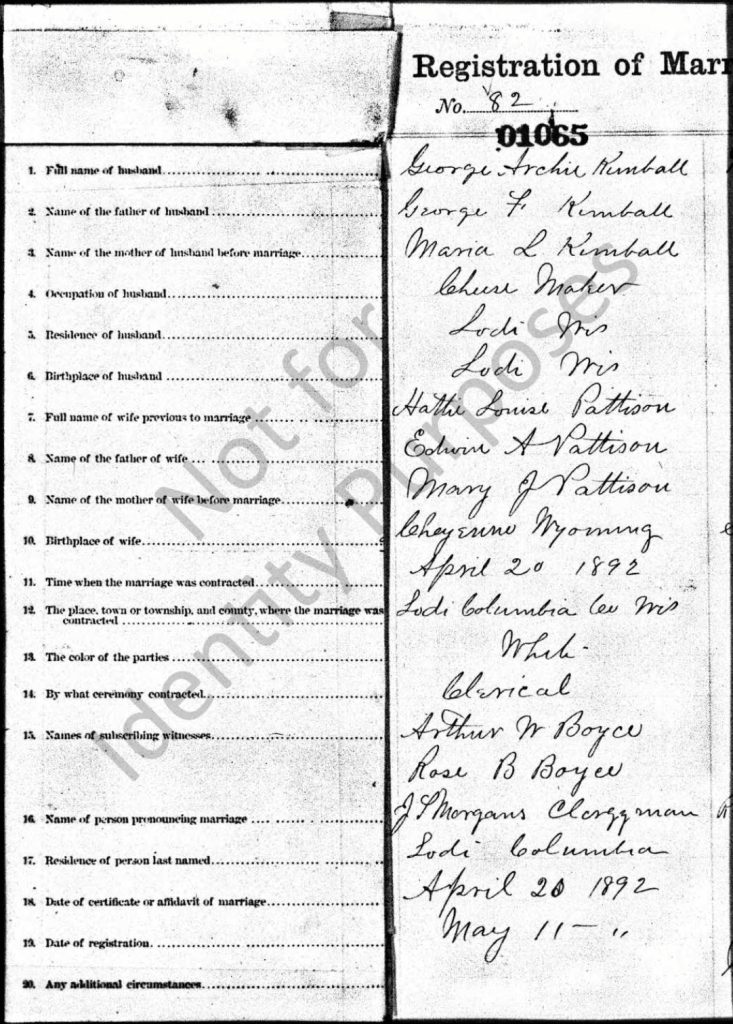 Registration of Marr
No. 82
01065
1. Full name of husband George Archie Kimball
2. Name of the father of husband George F Kimball
3. Name of the mother of husband before marriage Maria L Kimball
4. Occupation of husband Cheese Maker
5. Residence of husband Lodi Wis
6. Birthplace of husband Lodi Wis
7. Full name of wife previous to marriage Hattie Louise Pattison
8. Name of the father of wife Edwin A Pattison
9. Name of the mother of wife before marriage Mary J Pattison
10. Birthplace of wife Cheyenne Wyoming
11. Time when the marriage was contracted April 20 1892
12. The place, town or township, and county, where the marriage was
contracted Lodi Columbia Co Wis
13. The color of the parties White
14. By what ceremony contracted Clerical
15. Names of subscribing witnesses Arthur W Boyce
Rose B Boyce
16. Name of person pronouncing marriage J S Morgans Clergyman
17. Residence of person last named Lodi Columbia
18. Date of certificate or affidavit of marriage April 20 1892
19. Date of registration May 11 - "
20. Any additional circumstances
Not for
Identity Purposes